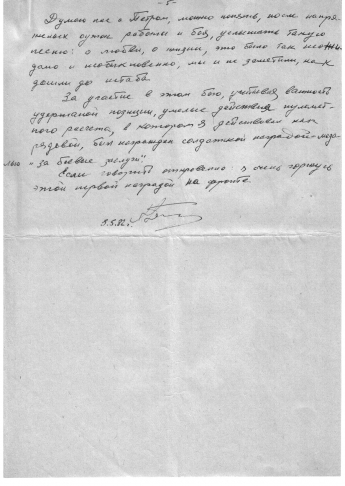 - 5 -
Думаю нас с Петром, можно понять, после напря-
женных суток работы и боя, услышать такую
песню: о любви, о жизни, это было так неожи-
данно и необыкновенно, мы и не заметили, как
дошли до штаба.
За участие в этом бою, учитывая важность
удержаной позиции, умелые действия пулемет-
ного расчета, в котором я действовал как
рядовой, был награжден солдатской наградой-меда-
лью "За боевые заслуги".
Если говорить откровенно: я очень горжусь
этой первой наградой на фронте.